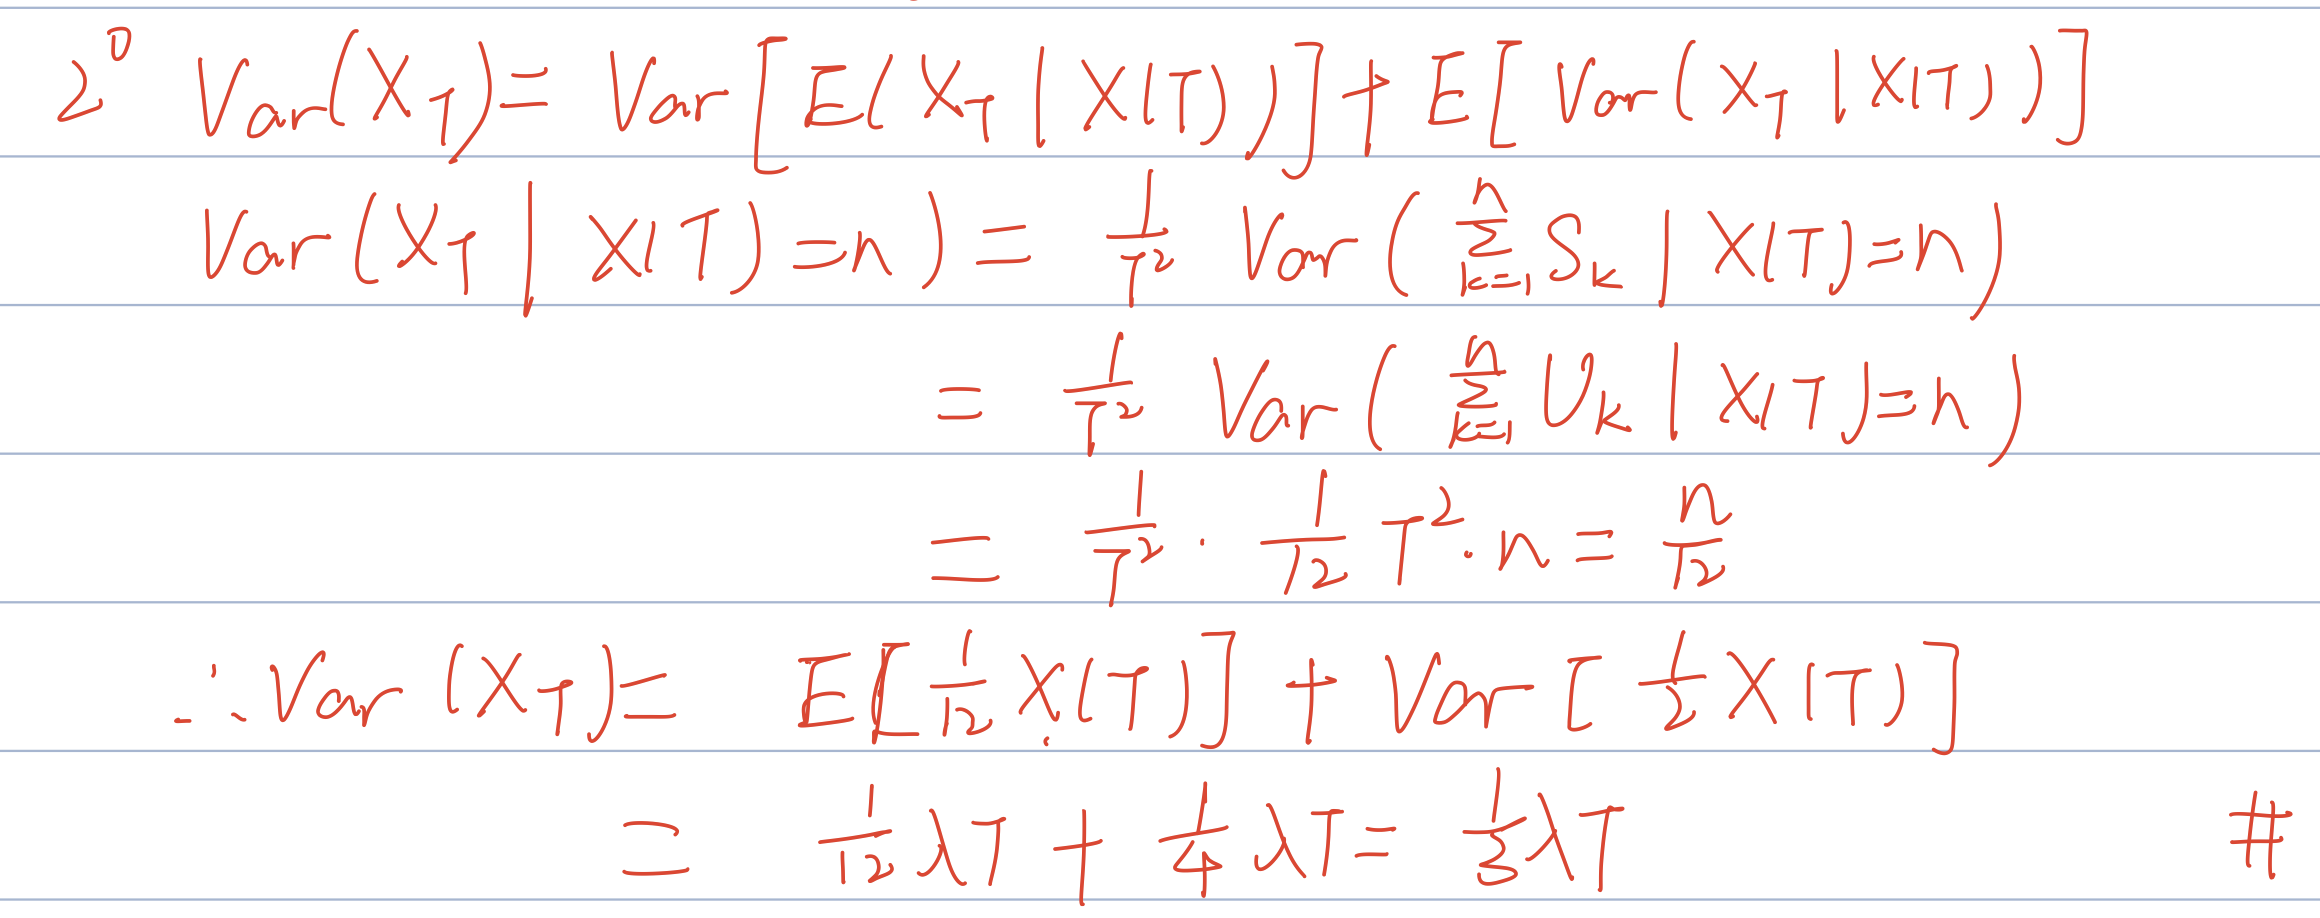 2⁰ Var(X_T) = Var[E(X_T | X(T))] + E[Var(X_T | X(T))]
Var(X_T | X(T)=n) = 1/T² Var(∑_{k=1}^{n} S_k | X(T)=n)
= 1/T² Var(∑_{k=1}^{n} U_k | X(T)=n)
= 1/T² · 1/12 T² · n = n/12
∴ Var(X_T) = E[1/12 X(T)] + Var[1/2 X(T)]
= 1/12 λT + 1/4 λT = 1/3 λT #